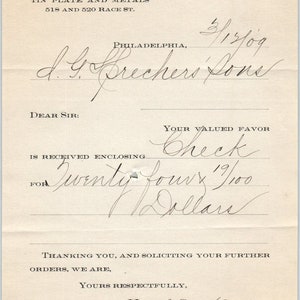 TIN PLATE AND METALS
518 AND 520 RACE ST.
PHILADELPHIA, 3/12/09
J. G. Krechers' Sons
DEAR SIR:
YOUR VALUED FAVOR
IS RECEIVED ENCLOSING Check
FOR Twenty four & 19/100
Dollars
THANKING YOU, AND SOLICITING YOUR FURTHER
ORDERS, WE ARE,
YOURS RESPECTFULLY,